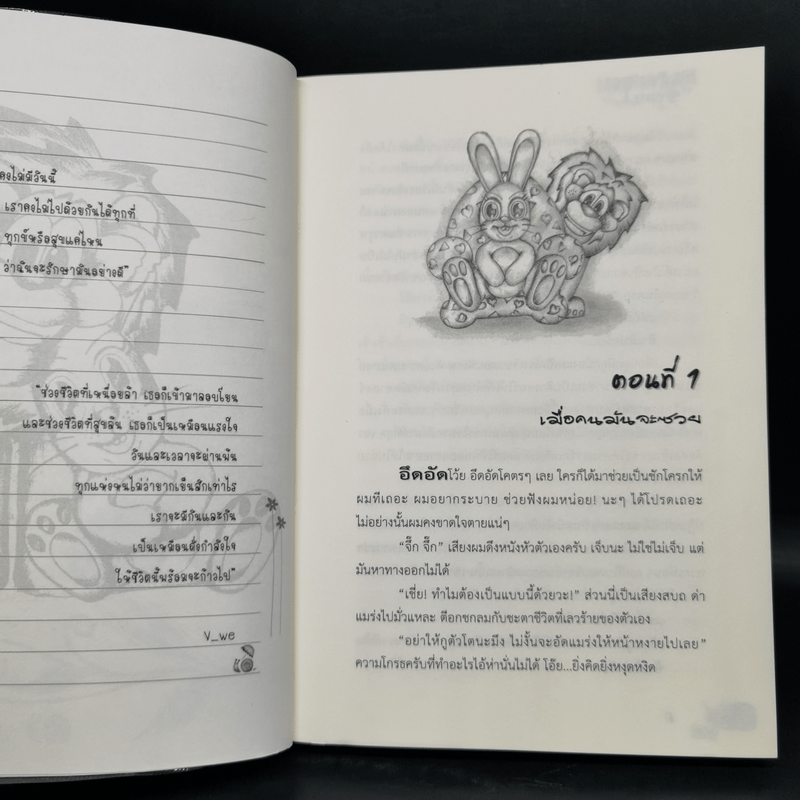 คงไม่มีวันนี้
เราคงไม่ไปด้วยกันได้ทุกที่
ทุกข์หรือสุขแค่ไหน
ว่าฉันจะรักษามันอย่างดี"
"ช่วงชีวิตที่เหนื่อยล้า เธอก็เข้ามาลอบโยน
และช่วงชีวิตที่สุขล้น เธอก็เป็นเหมือนแรงใจ
วันและเวลาจะผ่านพ้น
ทุกแห่งหนไม่ว่ายากเย็นสักเท่าไร
เราจะมีกันและกัน
เป็นเหมือนดั่งกำลังใจ
ให้ชีวิตนี้พร้อมจะก้าวไป"
V_we
ตอนที่ 1
เมื่อคนมันจะซวย
อึดอัดโว้ย อึดอัดโคตรๆ เลย ใครก็ได้มาช่วยเป็นชักโครกให้
ผมทีเถอะ ผมอยากระบาย ช่วยฟังผมหน่อย! นะๆ ได้โปรดเถอะ
ไม่อย่างนั้นผมคงขาดใจตายแน่ๆ
"จึ๊ก จึ๊ก" เสียงผมดึงหนังหัวตัวเองครับ เจ็บนะ ไม่ใช่ไม่เจ็บ แต่
มันหาทางออกไม่ได้
"เชี่ย! ทำไมต้องเป็นแบบนี้ด้วยวะ!" ส่วนนี่เป็นเสียงสบถ ด่า
แมร่งไปมั่วแหละ ตีอกชกลมกับชะตาชีวิตที่เลวร้ายของตัวเอง
"อย่าให้กูตัวโตนะมึง ไม่งั้นจะอัดแมร่งให้หน้าหงายไปเลย"
ความโกรธครับที่ทำอะไรไอ้ห่านั่นไม่ได้ โอ๊ย...ยิ่งคิดยิ่งหงุดหงิด